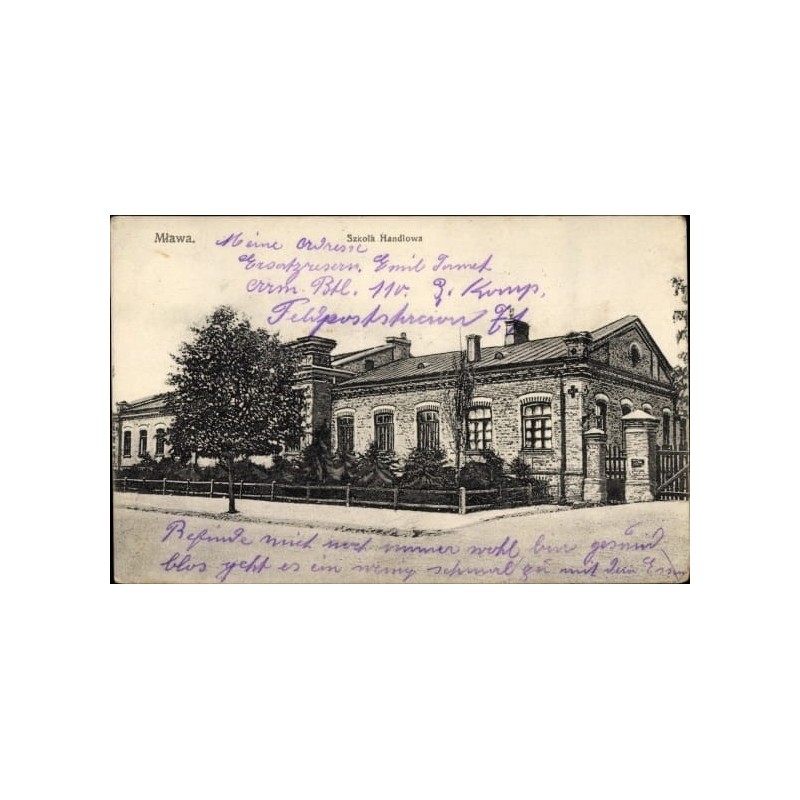 Mława.
Szkoła Handlowa
Meine Adresse
Ersatzreserv. Emil
Arm. Btl. 110. 2. Komp.
Feldpoststation 71
Befinde mich noch immer wohl bin gesund
blos geht es ein wenig schmal zu mit dem Essen